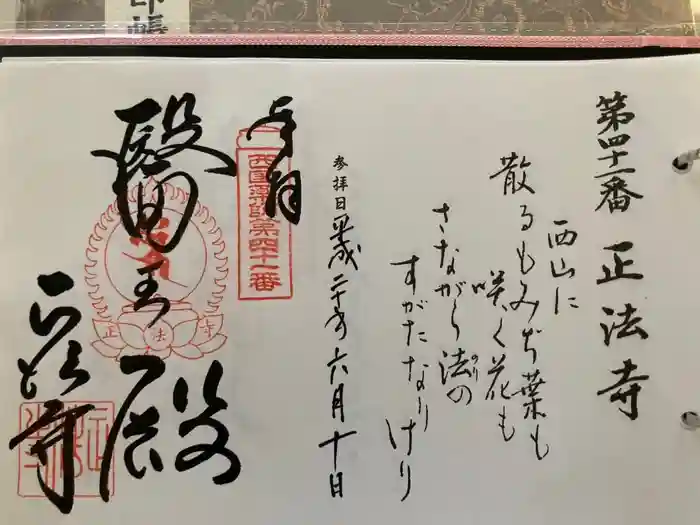 印帳
第四十一番 正法寺
西山に
散るもみぢ葉も
咲く花も
さながら法の
のり
すがたなりけり
参拝日 平成二十五年六月十日
奉拝
西国薬師第四十一番
醫王殿
正法寺
正法寺